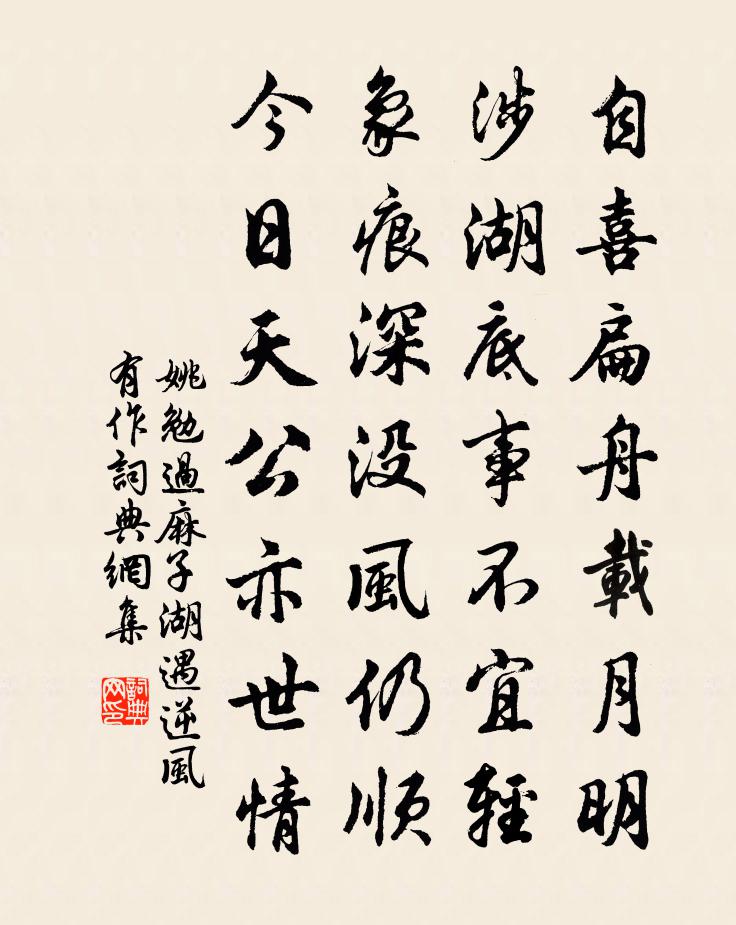 自喜扁舟載月明
涉湖底事不宜輕
象痕深没風仍順
今日天公亦世情
姚勉過麻子湖遇逆風
有作詞典網集
詞典
网印